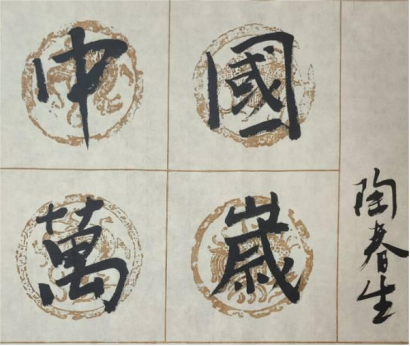 中國
萬歲
陶春生